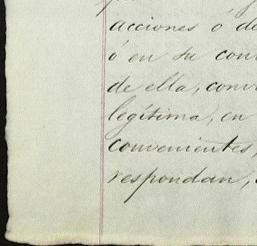 acciones ó de
ó en su con
de ella, conv
legítima, en
convenientes,
respondan,